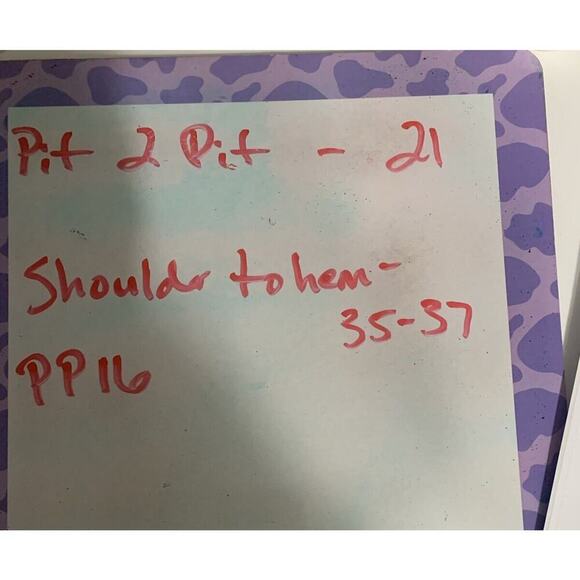 Pit 2 Pit - 21
Shoulder to hem-
35-37
PP16